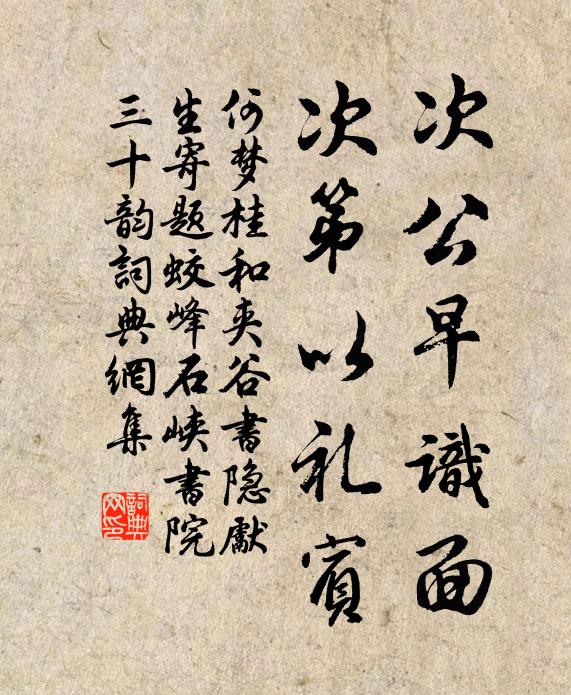 次公早識面
次第以礼賓
何梦桂和夹谷書隐獻
生寄题蛟峰石峡書院
三十韵詞典網集
詞典网印